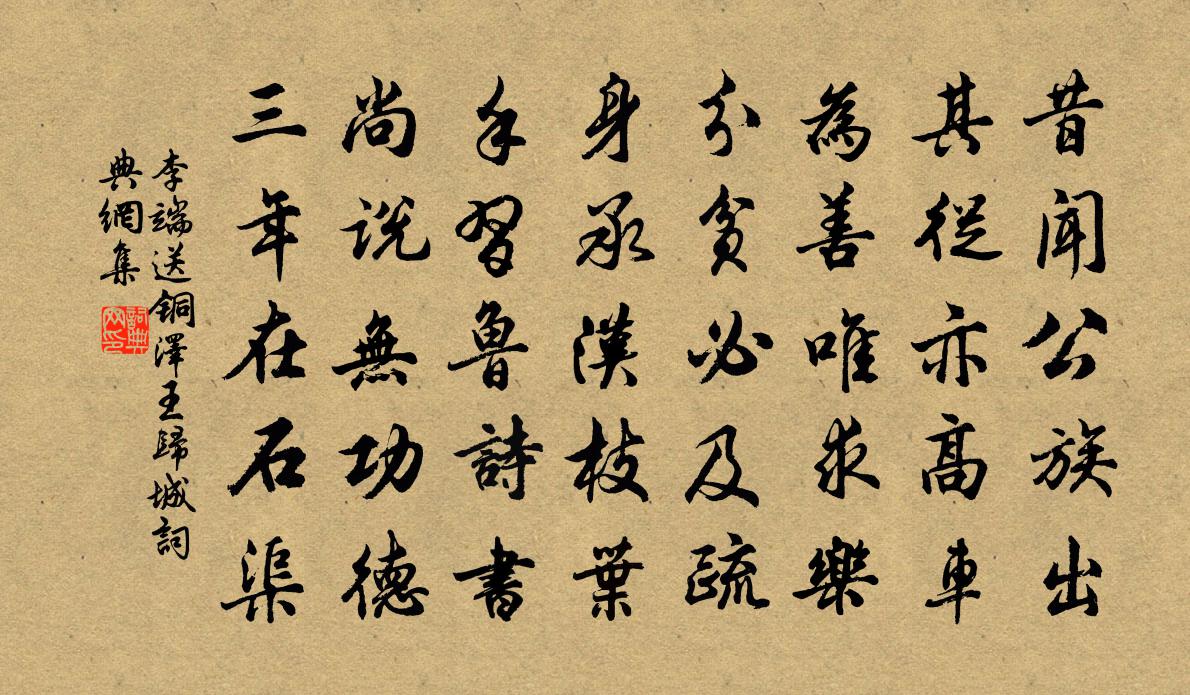 昔聞公族出
其從亦高車
為善唯求樂
分貧必及疏
身承漢枝葉
手習魯詩書
尚說無功德
三年在石渠
李端送銅澤王歸城詞
典網集
詞典
网印